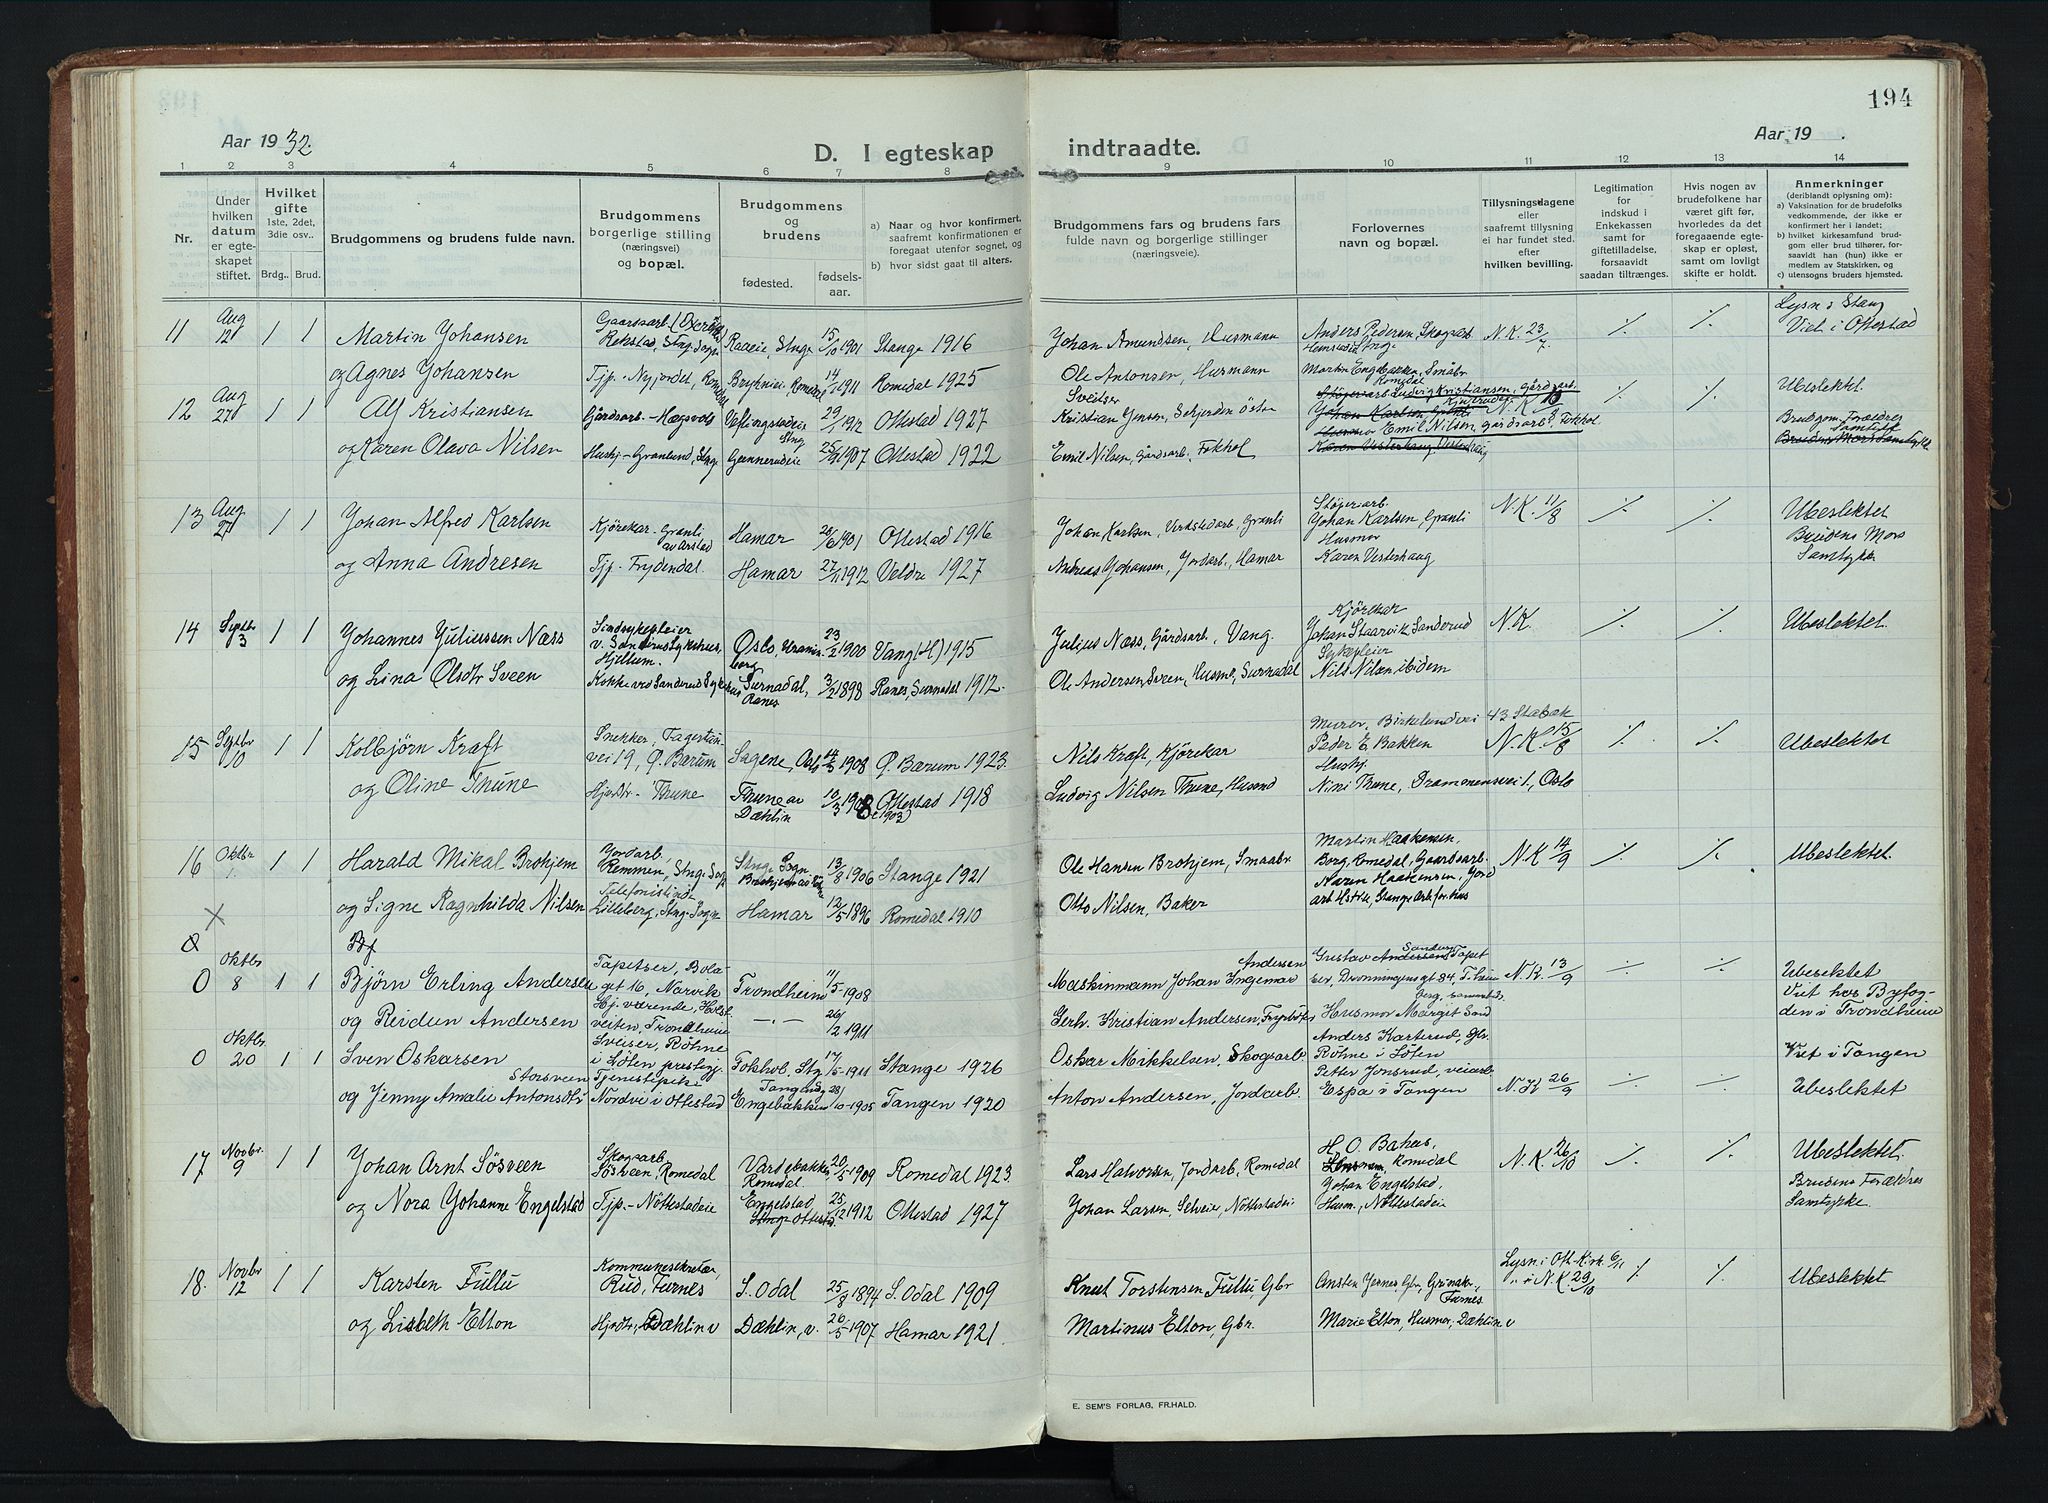 194
Aar 1932.
D. I egteskap indtraadte.
Aar 19 .
1 2 3 4 5 6 7 8 9 10 11 12 13 14
Nr.
Under hvilken datum er egteskapet stiftet.
Hvilket gifte
1ste, 2det, 3die osv..
Brdg.. Brud.
Brudgommens og brudens fulde navn.
Brudgommens borgerlige stilling (næringsvei) og bopæl.
Brudgommens og brudens
fødested.
fødsels-aar.
a) Naar og hvor konfirmert. saafremt konfirmationen er foregaat utenfor sognet, og
b) hvor sidst gaat til alters.
Brudgommens fars og brudens fars fulde navn og borgerlige stillinger (næringsveie).
Forlovernes navn og bopæl.
Tillysningsdagene eller saafremt tillysning ei har fundet sted. efter hvilken bevilling.
Legitimation for indskud i Enkekassen samt for giftetilladelse, forsaavidt saadan tiltrænges.
Hvis nogen av brudefolkene har været gift før, hvorledes da det foregaaende egteskap er opløst, samt om lovligt skifte er holdt.
Anmerkninger (deriblandt oplysning om):
a) Vaksination for de brudefolks vedkommende, der ikke er konfirmert her i landet;
b) hvilket kirkesamfund brudgom eller brud tilhører, forsaavidt han (hun) ikke er medlem av Statskirken, og
c) utensogns bruders hjemsted.
11 Aug 12 1 1 Martin Johansen Gaardsarb. Rekstad, Stng. Sogn Raaeie, Stnge 15/10 1901 Stange 1916 Johan Amundsen, Husmann Anders Pedersen, Skogsarb. Stnge N.K. 23/7 ·/. ·/. Lysn i Stang Viet i Ottestad
og Agnes Johansen Tjp. - Nyjordet, Romedal Brynieie Romedal 14/1 1911 Romedal 1925 Ole Antonsen, Husmann Martin Engbakken, Småbr. Romedal
12 Aug 27 1 1 Alf Kristiansen Gårdsarb. - Hægsvold Veflingstadeie Stng. 29/1 1912 Ottestad 1927 Sveitser Kristian Jensen, Skjerden østre Ludvig Kristiansen, Gårdsarb. N.K. 10/8 ·/. ·/. Ubeslektet.
Brudgom. Forældres Samtykke
og Karen Olava Nilsen Hushj - Granlund, Stng. Gunnerudeie 25/9 1907 Ottestad 1922 Emil Nilsen, Gårdsarb. Fokhol Emil Nilsen, gårdsarb. Fokhol
13 Aug. 27 1 1 Johan Alfred Karlsen Kjørekar. Granli av Arstad Hamar 28/6 1901 Ottestad 1916 Johan Karlsen, Verkstedarb. Granli Støperiarb. Johan Karlsen, Granli N.K. 11/8 ·/. ·/. Ubeslektet
Brudens Mors Samtykke
og Anna Andresen Tjp. Frydendal. Hamar 27/11 1912 Veldre 1927 Andreas Johansen, Jordarb. Hamar Husmor Karen Vesterhaug
14 Septbr 3 1 1 Johannes Juliussen Næss Sindsykepleier v. Sanderud Sykehus, Hjellum. Oslo, Uranienborg 23/2 1900 Vang (H) 1915 Julius Næss, Gårdsarb., Vang. Kjørekar Johan Staarvik, Sanderud N.K. ·/. ·/. Ubeslektet.
og Lina Olsdtr Sveen Kokke ved Sanderud Sykehus Surnadal, Ranes 3/2 1898 Ranes, Surnadal 1912. Ole Andersen Sveen, Husm., Surnadal Sykepleier Nils Nilsen ibidem
15 Septbr 10 1 1 Kolbjørn Kraft Snekker, Fagertunvei 19, Ø. Bærum Sagene, Oslo 14/3 1908 Ø. Bærum 1923. Nils Kraft, Kjørekar Murer, Birkelundvei 43 Stabæk Peder E. Bakken N.K. 15/8 ·/. ·/. Ubeslektet
og Oline Thune Hjdtr - Thune Thune av Dæhlin 10/3 1908 (1903) Ottestad 1918 Ludvig Nilsen Thune, Husmd Hushj. Nini Thune, Drammensvei 1, Oslo
16 Oktbr 1. 1 1 Harald Mikal Brohjem Jordarb. Remmen, Stng. Sogn Stng. Sogn 13/8 1906 Stange 1921 Ole Hansen Brohjem, Smaabr. Martin Haakensen, Borg, Romedal, Gaardsarb. N.K 14/9 ·/. ·/. Ubeslektet.
og Signe Ragnhilda Nilsen Telefonistinde Lilleberg, Stng. Sogn Hamar 12/5 1896 Romedal 1910 Otto Nilsen, Baker Karen Haakensen, Jordarb.
X
Bf
0 Oktbr 8 1 1 Bjørn Erling Andersen Tapetser, Bolagt 16, Narvik Trondheim 11/5-1908 Maskinmann Johan Ingemar Andersen Gustav Andersen Tapetser, Dronningensgt 84, T.heim N.K. 13/9 ·/. ·/. Ubeslektet
Viet hos Byfogden i Trondheim
og Reidun Andersen Hj. værende, Trondheim -.- 26/2 1911 Gerh. Kristian Andersen, Fyrbøter Husmor Margit Sandberg
0 Oktbr 20 1 1 Sven Oskarsen Sveiser, Røhne i Løten prestegj. Fokhol, Stg 17/5-1911 Stange 1926 Oskar Mikkelsen, Skogsarb. Anders Karterud, Gbr. Røhne i Løten Viet i Tangen
og Jenny Amalie Antonsdtr Storsveen Tjenestepike Nordvi i Ottestad Tangen Engebakken 28/10-1905 Tangen 1920 Anton Andersen, Jordarb. Petter Jonsrud, veiarb. Espa i Tangen N.K 26/9 ·/. ·/. Ubeslektet
17 Novbr. 9 1 1 Johan Arnt Søsveen Skogsarb. Søsveen, Romedal Vardebakken Romedal 20/5 1909 Romedal 1923. Lars Halvorsen, Jordarb, Romedal H. O. Bahus, Romedal N.K. 26/10 ·/. ·/. Ubeslektet.
Brudens Forældres Samtykke.
og Nora Johanne Engelstad Tjp. - Nøttestadeie Engelstad Ottestad 25/12 1912 Ottestad 1927 Johan Larsen, Selveie, Nøttestadeie Johan Engelstad, Husm., Nøttestadeie
18. Novbr 12 1 1 Karsten Fullu Kommunesekretær, Rud, Furnes S. Odal 25/8 1894 S. Odal 1909 Knut Torstensen Fullu, Gbr Ansten Jernes, Gbr, Furnes Lysn. i Ott. Kirk. 6/11 „ i N.K. 29/10 ·/. ·/. Ubeslektet
og Lisbeth Elton Hjmdtr, Dæhlin v Dæhlin, v. 20/5 1907 Hamar 1921. Martinus Elton, Gbr. Marie Elton, Husmor, Dæhlin v
E. SEM'S FORLAG, FR.HALD.